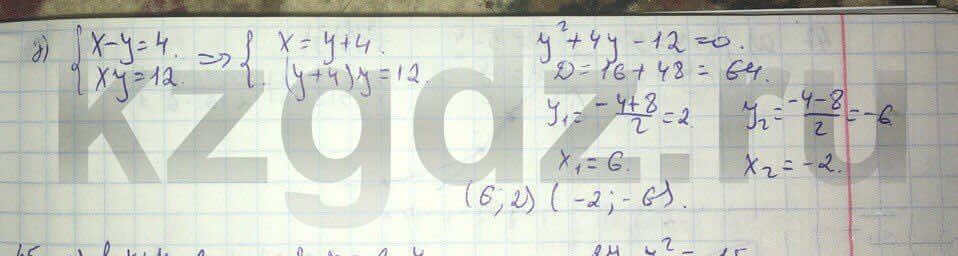 д) { x-y=4. => { x=y+4. y²+4y-12=0.
xy=12. (y+4)y=12. D=16+48=64.
y₁=(-4+8)/2=2 y₂=(-4-8)/2=-6
x₁=6. x₂=-2.
(6;2) (-2;-6).
kzgdz.ru